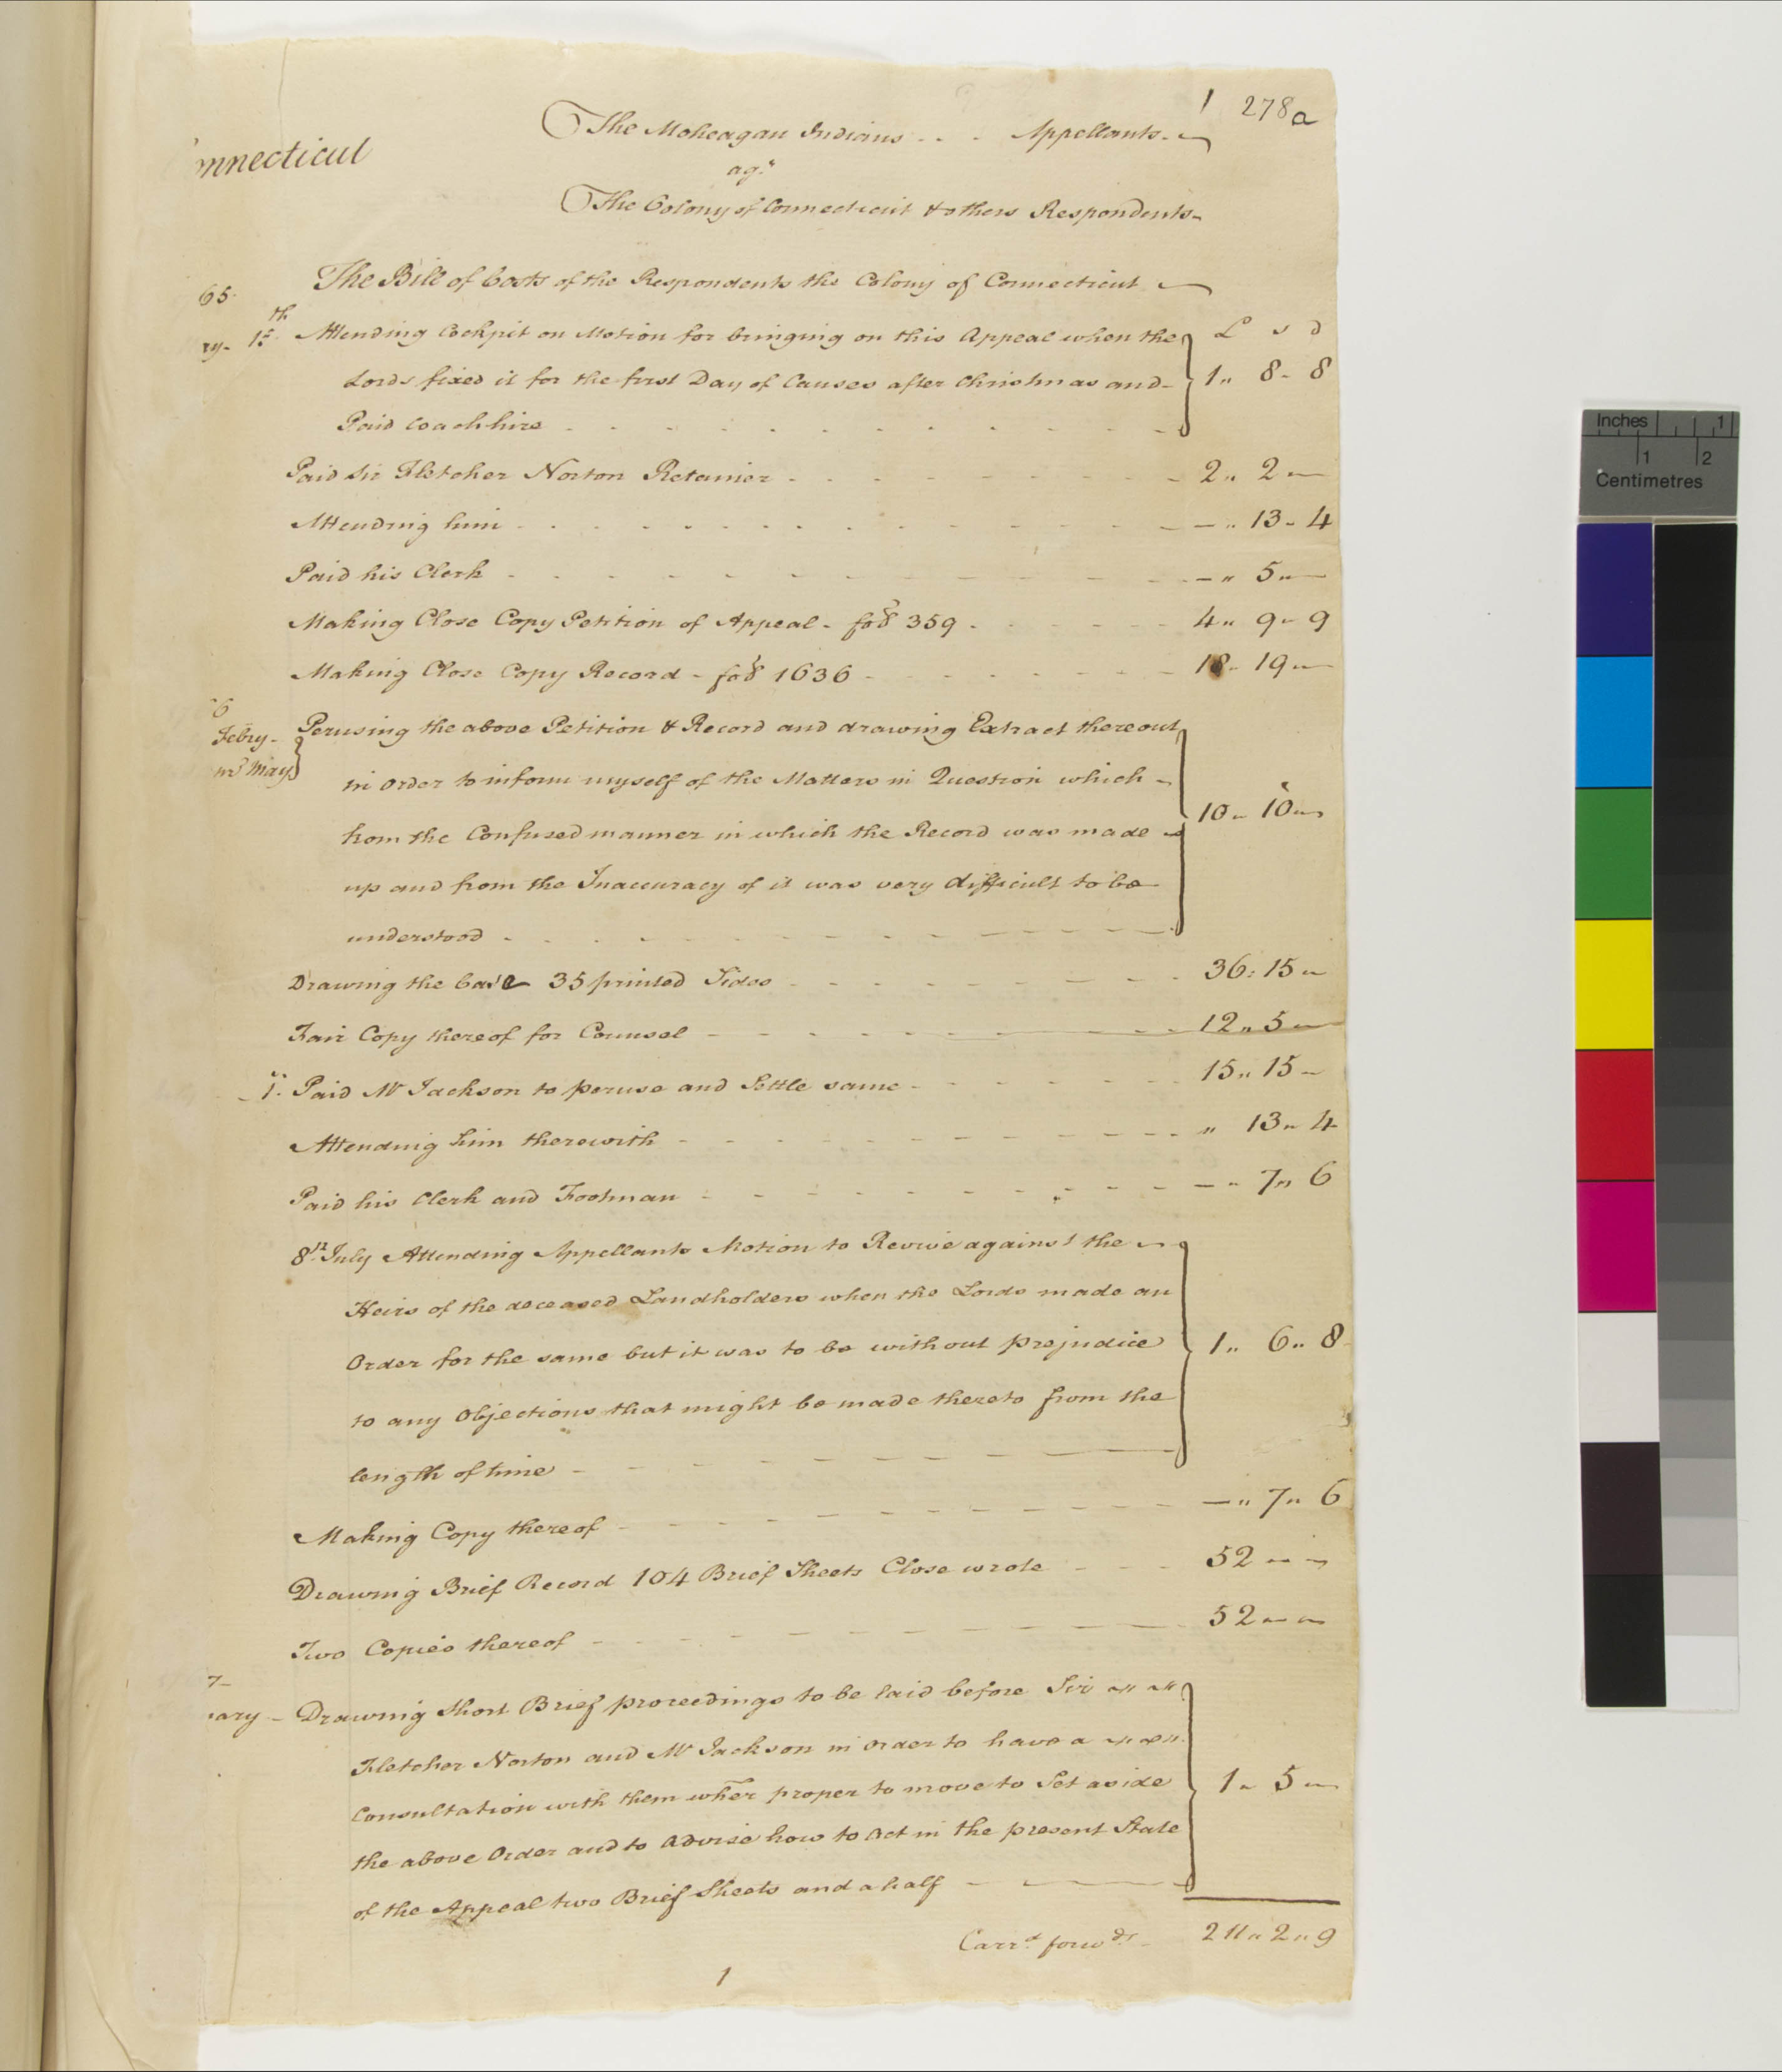 1 278a
The Moheagan Indians . . . Appellants.
onnecticut
agt
The Colony of Connecticut & others Respondents.
The Bill of Costs of the Respondents the Colony of Connecticut
65.
£ s d
ry. 1st Attending Cockpit on Motion for bringing on this Appeal when the
Lords fixed it for the first Day of Causes after Christmas and 1" 8 - 8
Paid Coach hire
Paid Sir Fletcher Norton Retainer 2" 2 —
Attending him — " 13 - 4
Paid his Clerk — " 5 " —
Making Close Copy Petition of Appeal - fos 359 4" 9 " 9
Making Close Copy Record - fos 1636 18 " 19 " —
6
Febry. Perusing the above Petition & Record and drawing Extract thereout
May in order to inform myself of the Matters in Question which
from the Confused manner in which the Record was made 10 " 10 " —
up and from the Inaccuracy of it was very difficult to be
understood
Drawing the Case 35 printed Sides 36 : 15 "
Fair Copy thereof for Counsel 12 " 5 —
1. Paid Mr Jackson to peruse and Settle same 15 " 15 —
Attending him therewith " 13 " 4
Paid his Clerk and Footman — " 7 " 6
8th July Attending Appellants Motion to Revive against the
Heirs of the deceased Landholders when the Lords made an
Order for the same but it was to be without prejudice 1 " 6 " 8
to any Objections that might be made thereto from the
length of time
Making Copy thereof — " 7 " 6
Drawing Brief Record 104 Brief Sheets Close wrote 52 " — " —
Two Copies thereof 52 " — " —
7
ary - Drawing Short Brief proceedings to be laid before Sir
Fletcher Norton and Mr Jackson in order to have a
Consultation with them whēr proper to move to Set aside 1 " 5 " —
the above Order and to advise how to act in the present State
of the Appeal two Brief Sheets and a half
Carrd forwds 211 " 2 " 9
1
Inches 1
1 2
Centimetres